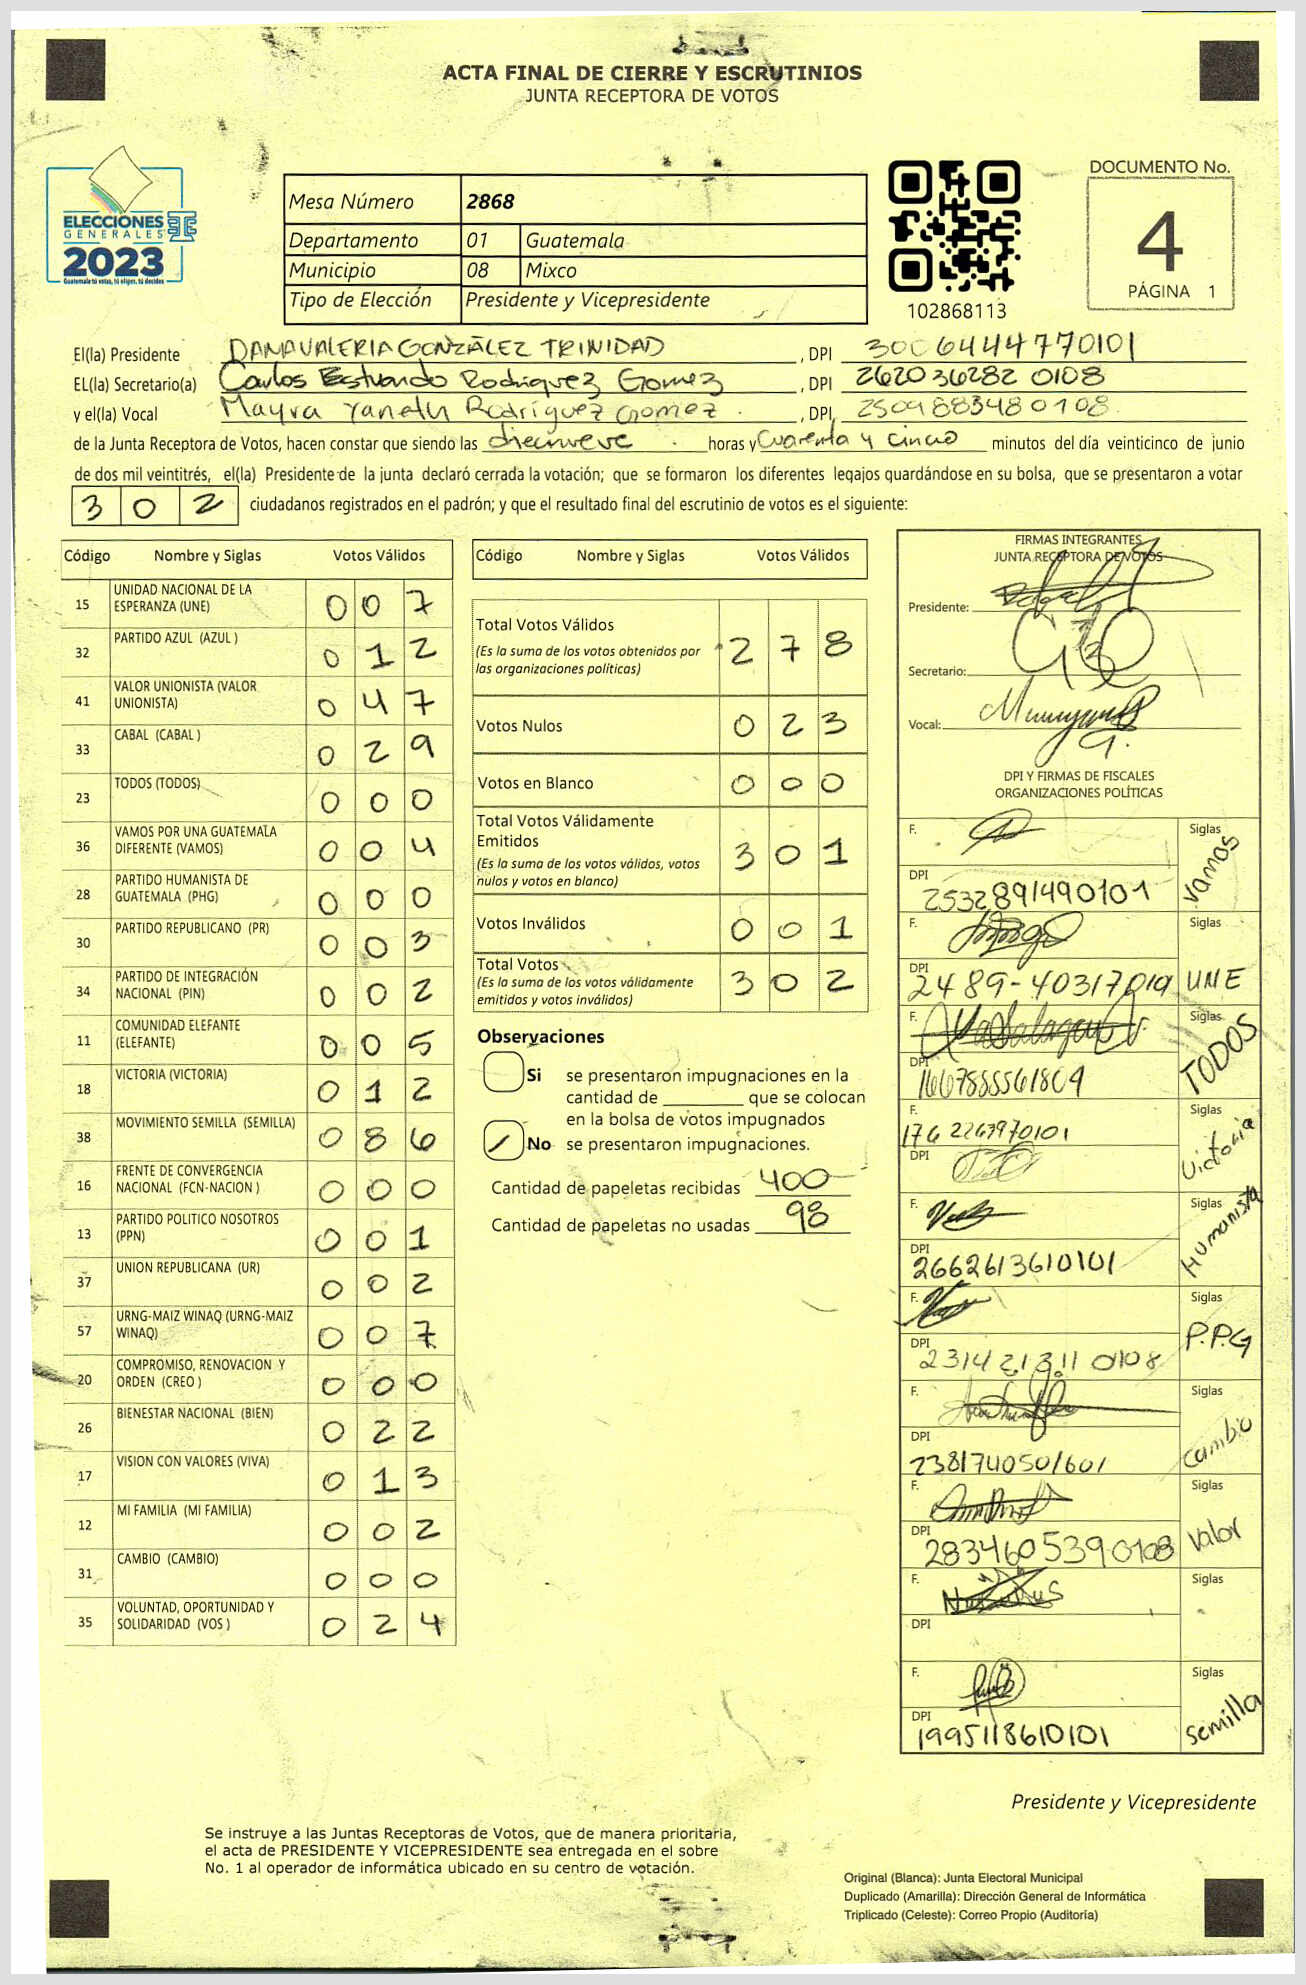 ACTA FINAL DE CIERRE Y ESCRUTINIOS
JUNTA RECEPTORA DE VOTOS
ELECCIONES
GENERALES
2023
Guatemala tú votas, tú eliges, tú decides
Mesa Número 2868
Departamento 01 Guatemala
Municipio 08 Mixco
Tipo de Elección Presidente y Vicepresidente
102868113
DOCUMENTO No.
4
PÁGINA 1
El(la) Presidente DANA VALERIA GONZÁLEZ TRINIDAD, DPI 3006444770101
EL(la) Secretario(a) Carlos Estuardo Rodriguez Gomez, DPI 262036282 0108
y el(la) Vocal Mayra Yaneth Rodríguez Gomez, DPI 2509883480108
de la Junta Receptora de Votos, hacen constar que siendo las diecinueve horas y Cuarenta y cinco minutos del día veinticinco de junio
de dos mil veintitrés, el(la) Presidente de la junta declaró cerrada la votación; que se formaron los diferentes legajos quardándose en su bolsa, que se presentaron a votar
302 ciudadanos registrados en el padrón; y que el resultado final del escrutinio de votos es el siguiente:
Código Nombre y Siglas Votos Válidos
15 UNIDAD NACIONAL DE LA ESPERANZA (UNE) 007
32 PARTIDO AZUL (AZUL ) 012
41 VALOR UNIONISTA (VALOR UNIONISTA) 047
33 CABAL (CABAL ) 029
23 TODOS (TODOS) 000
36 VAMOS POR UNA GUATEMALA DIFERENTE (VAMOS) 004
28 PARTIDO HUMANISTA DE GUATEMALA (PHG) 000
30 PARTIDO REPUBLICANO (PR) 003
34 PARTIDO DE INTEGRACIÓN NACIONAL (PIN) 002
11 COMUNIDAD ELEFANTE (ELEFANTE) 005
18 VICTORIA (VICTORIA) 012
38 MOVIMIENTO SEMILLA (SEMILLA) 086
16 FRENTE DE CONVERGENCIA NACIONAL (FCN-NACION ) 000
13 PARTIDO POLITICO NOSOTROS (PPN) 001
37 UNION REPUBLICANA (UR) 002
57 URNG-MAIZ WINAQ (URNG-MAIZ WINAQ) 007
20 COMPROMISO, RENOVACION Y ORDEN (CREO ) 000
26 BIENESTAR NACIONAL (BIEN) 022
17 VISION CON VALORES (VIVA) 013
12 MI FAMILIA (MI FAMILIA) 002
31 CAMBIO (CAMBIO) 000
35 VOLUNTAD, OPORTUNIDAD Y SOLIDARIDAD (VOS ) 024
Código Nombre y Siglas Votos Válidos
Total Votos Válidos 278
(Es la suma de los votos obtenidos por
las organizaciones políticas)
Votos Nulos 023
Votos en Blanco 000
Total Votos Válidamente
Emitidos 301
(Es la suma de los votos válidos, votos
nulos y votos en blanco)
Votos Inválidos 001
Total Votos 302
(Es la suma de los votos válidamente
emitidos y votos inválidos)
Observaciones
Si se presentaron impugnaciones en la
cantidad de ________ que se colocan
en la bolsa de votos impugnados
No se presentaron impugnaciones.
Cantidad de papeletas recibidas 400
Cantidad de papeletas no usadas 98
FIRMAS INTEGRANTES
JUNTA RECEPTORA DE VOTOS
Presidente:
Secretario:
Vocal:
DPI Y FIRMAS DE FISCALES
ORGANIZACIONES POLÍTICAS
F. Siglas Vamos
DPI 2532891490101
F. Siglas UNE
DPI 2489-40317019
F. Siglas TODOS
DPI
F. 176 2263970101 Siglas Victoria
DPI
F. Siglas Humanista
DPI 2662613610101
F. Siglas P.P.G
DPI
F. Siglas cambio
DPI 2381740501601
F. Siglas Valor
DPI 2834605390108
F. Siglas
DPI
F. Siglas semilla
DPI 1995118610101
Presidente y Vicepresidente
Se instruye a las Juntas Receptoras de Votos, que de manera prioritaria,
el acta de PRESIDENTE Y VICEPRESIDENTE sea entregada en el sobre
No. 1 al operador de informática ubicado en su centro de votación.
Original (Blanca): Junta Electoral Municipal
Duplicado (Amarilla): Dirección General de Informática
Triplicado (Celeste): Correo Propio (Auditoría)